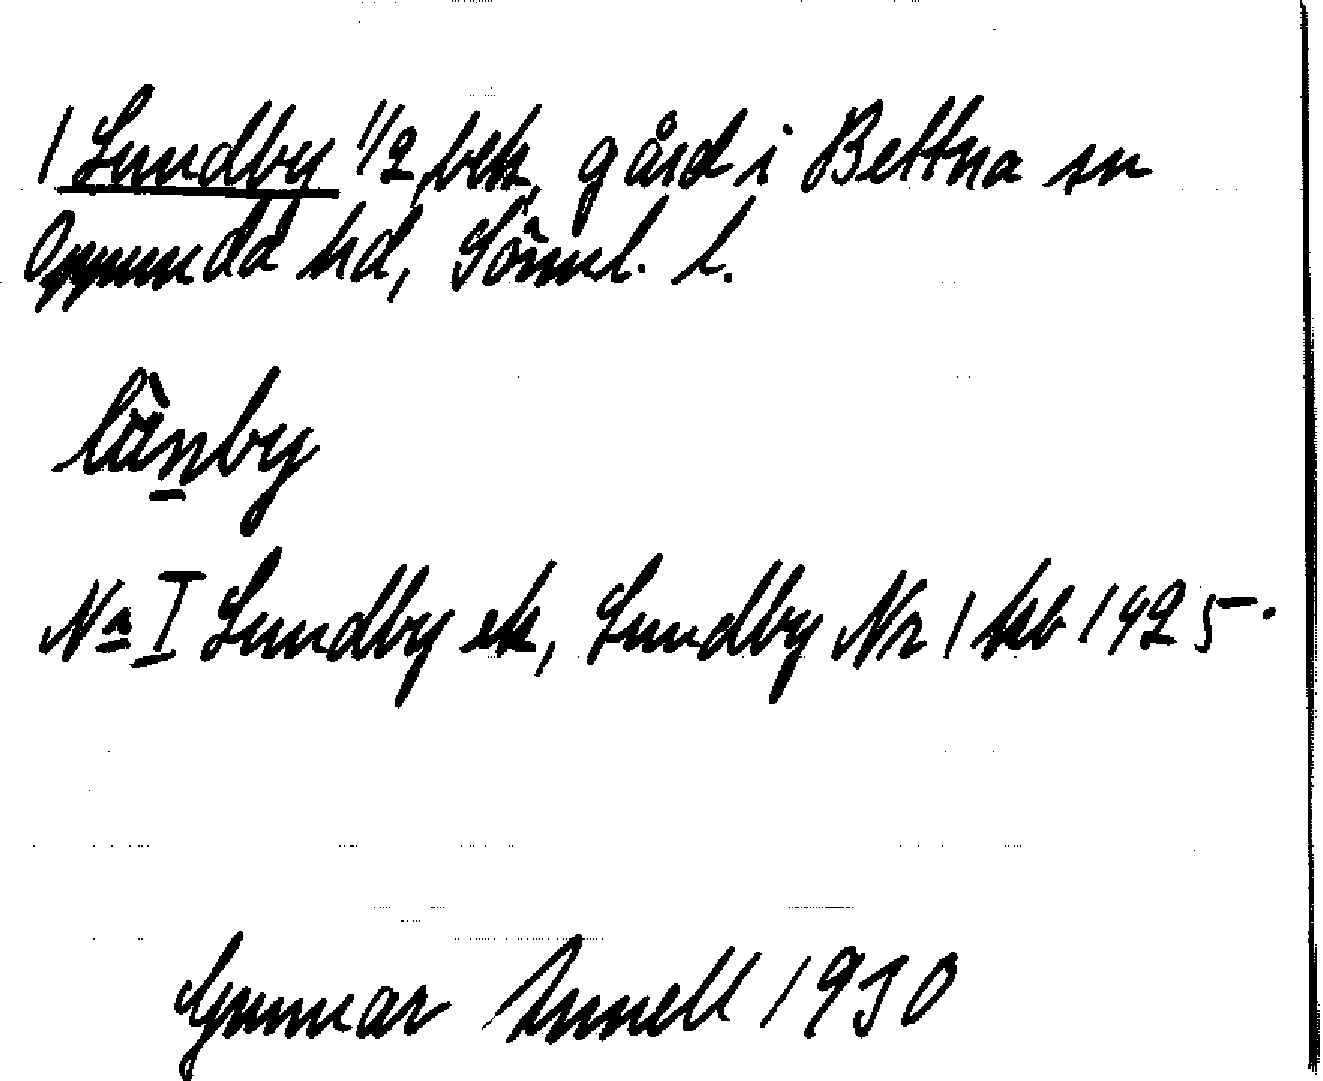 1 Lundby 1/2 bek, gård i Bettna sn
Oppunda hd, Söml. l.
lὰnby
No I Lundby ek, Lundby Nr 1 kb 1925.
Gunnar Annell 1930